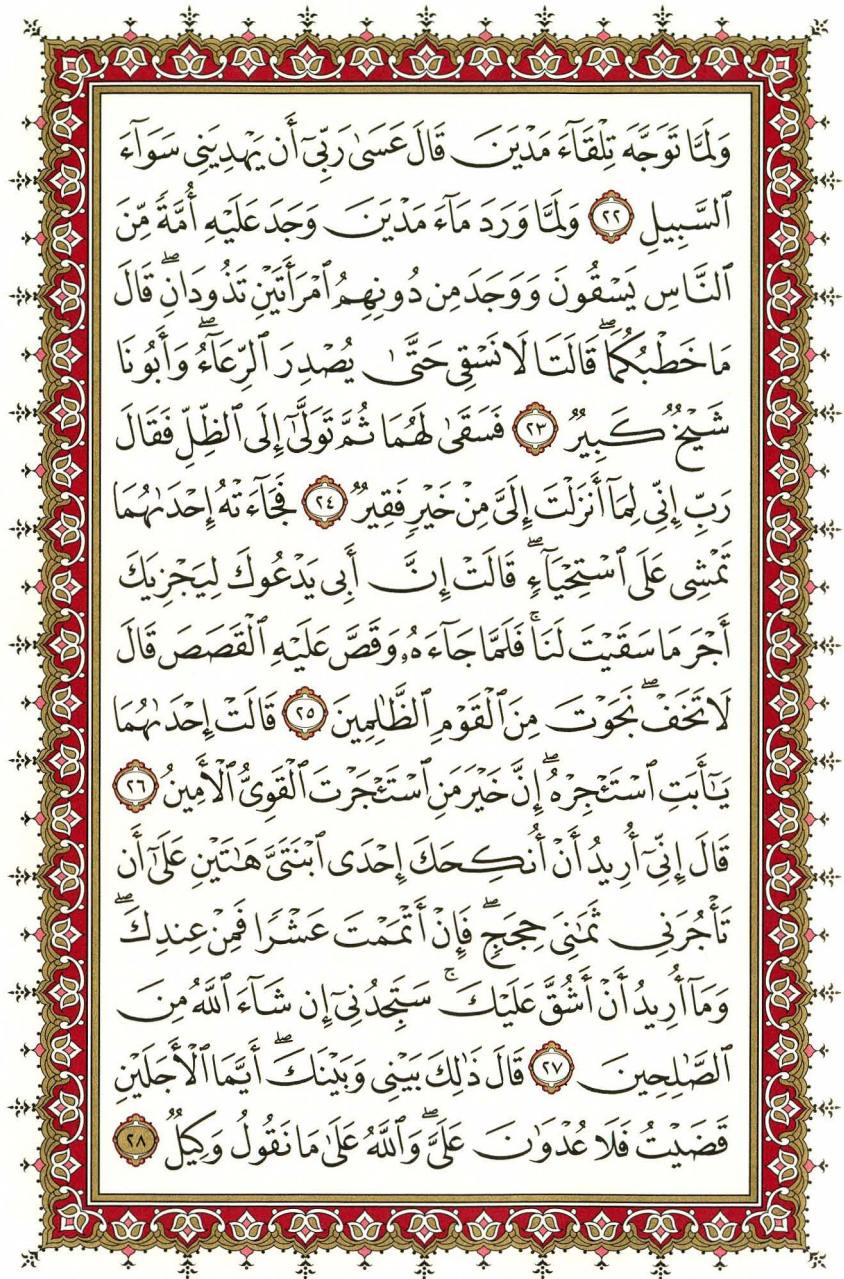 وَلَمَّا تَوَجَّهَ تِلْقَآءَ مَدْيَنَ قَالَ عَسَىٰ رَبِّىٓ أَن يَهْدِيَنِى سَوَآءَ
ٱلسَّبِيلِ ٢٢ وَلَمَّا وَرَدَ مَآءَ مَدْيَنَ وَجَدَ عَلَيْهِ أُمَّةً مِّنَ
ٱلنَّاسِ يَسْقُونَ وَوَجَدَ مِن دُونِهِمُ ٱمْرَأَتَيْنِ تَذُودَانِ ۖ قَالَ
مَا خَطْبُكُمَا ۖ قَالَتَا لَا نَسْقِى حَتَّىٰ يُصْدِرَ ٱلرِّعَآءُ ۖ وَأَبُونَا
شَيْخٌ كَبِيرٌ ٢٣ فَسَقَىٰ لَهُمَا ثُمَّ تَوَلَّىٰٓ إِلَى ٱلظِّلِّ فَقَالَ
رَبِّ إِنِّى لِمَآ أَنزَلْتَ إِلَىَّ مِنْ خَيْرٍ فَقِيرٌ ٢٤ فَجَآءَتْهُ إِحْدَىٰهُمَا
تَمْشِى عَلَى ٱسْتِحْيَآءٍ ۖ قَالَتْ إِنَّ أَبِى يَدْعُوكَ لِيَجْزِيَكَ
أَجْرَ مَا سَقَيْتَ لَنَا ۚ فَلَمَّا جَآءَهُۥ وَقَصَّ عَلَيْهِ ٱلْقَصَصَ قَالَ
لَا تَخَفْ ۖ نَجَوْتَ مِنَ ٱلْقَوْمِ ٱلظَّٰلِمِينَ ٢٥ قَالَتْ إِحْدَىٰهُمَا
يَٰٓأَبَتِ ٱسْتَـْٔجِرْهُ ۖ إِنَّ خَيْرَ مَنِ ٱسْتَـْٔجَرْتَ ٱلْقَوِىُّ ٱلْأَمِينُ ٢٦
قَالَ إِنِّىٓ أُرِيدُ أَنْ أُنكِحَكَ إِحْدَى ٱبْنَتَىَّ هَٰتَيْنِ عَلَىٰٓ أَن
تَأْجُرَنِى ثَمَٰنِىَ حِجَجٍ ۖ فَإِنْ أَتْمَمْتَ عَشْرًا فَمِنْ عِندِكَ ۖ
وَمَآ أُرِيدُ أَنْ أَشُقَّ عَلَيْكَ ۚ سَتَجِدُنِىٓ إِن شَآءَ ٱللَّهُ مِنَ
ٱلصَّٰلِحِينَ ٢٧ قَالَ ذَٰلِكَ بَيْنِى وَبَيْنَكَ ۖ أَيَّمَا ٱلْأَجَلَيْنِ
قَضَيْتُ فَلَا عُدْوَٰنَ عَلَىَّ ۖ وَٱللَّهُ عَلَىٰ مَا نَقُولُ وَكِيلٌ ٢٨